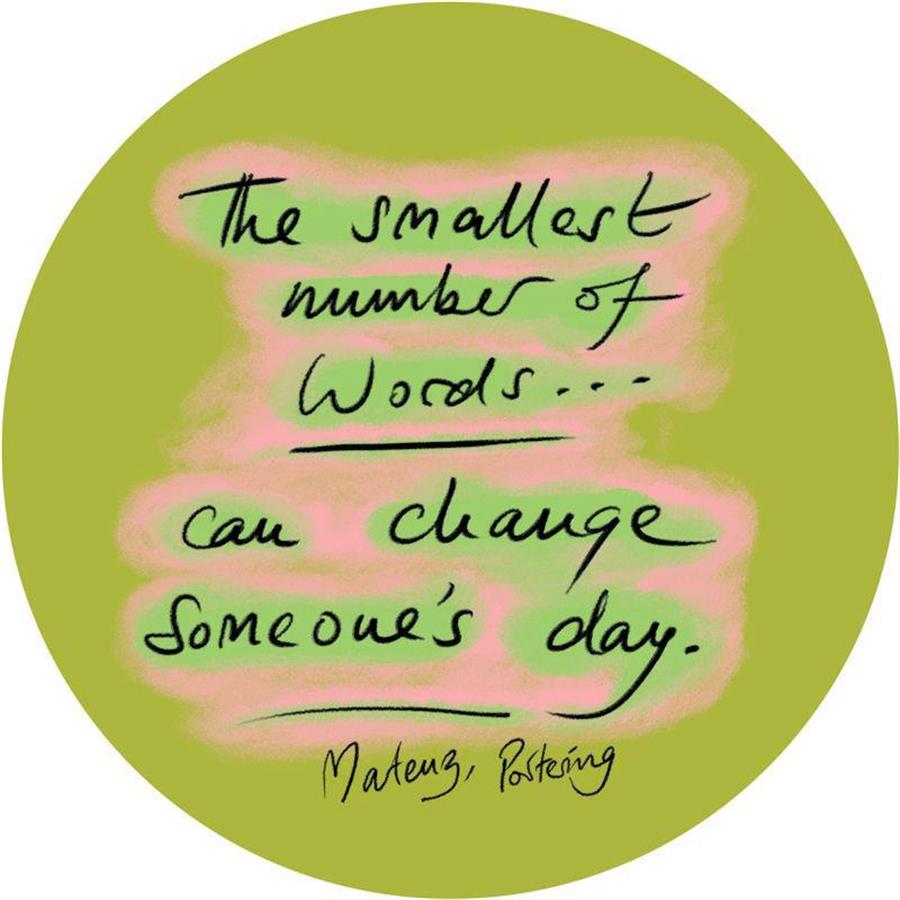 The smallest
number of
Words...
can change
Someone's day.
Mateuz, Portering